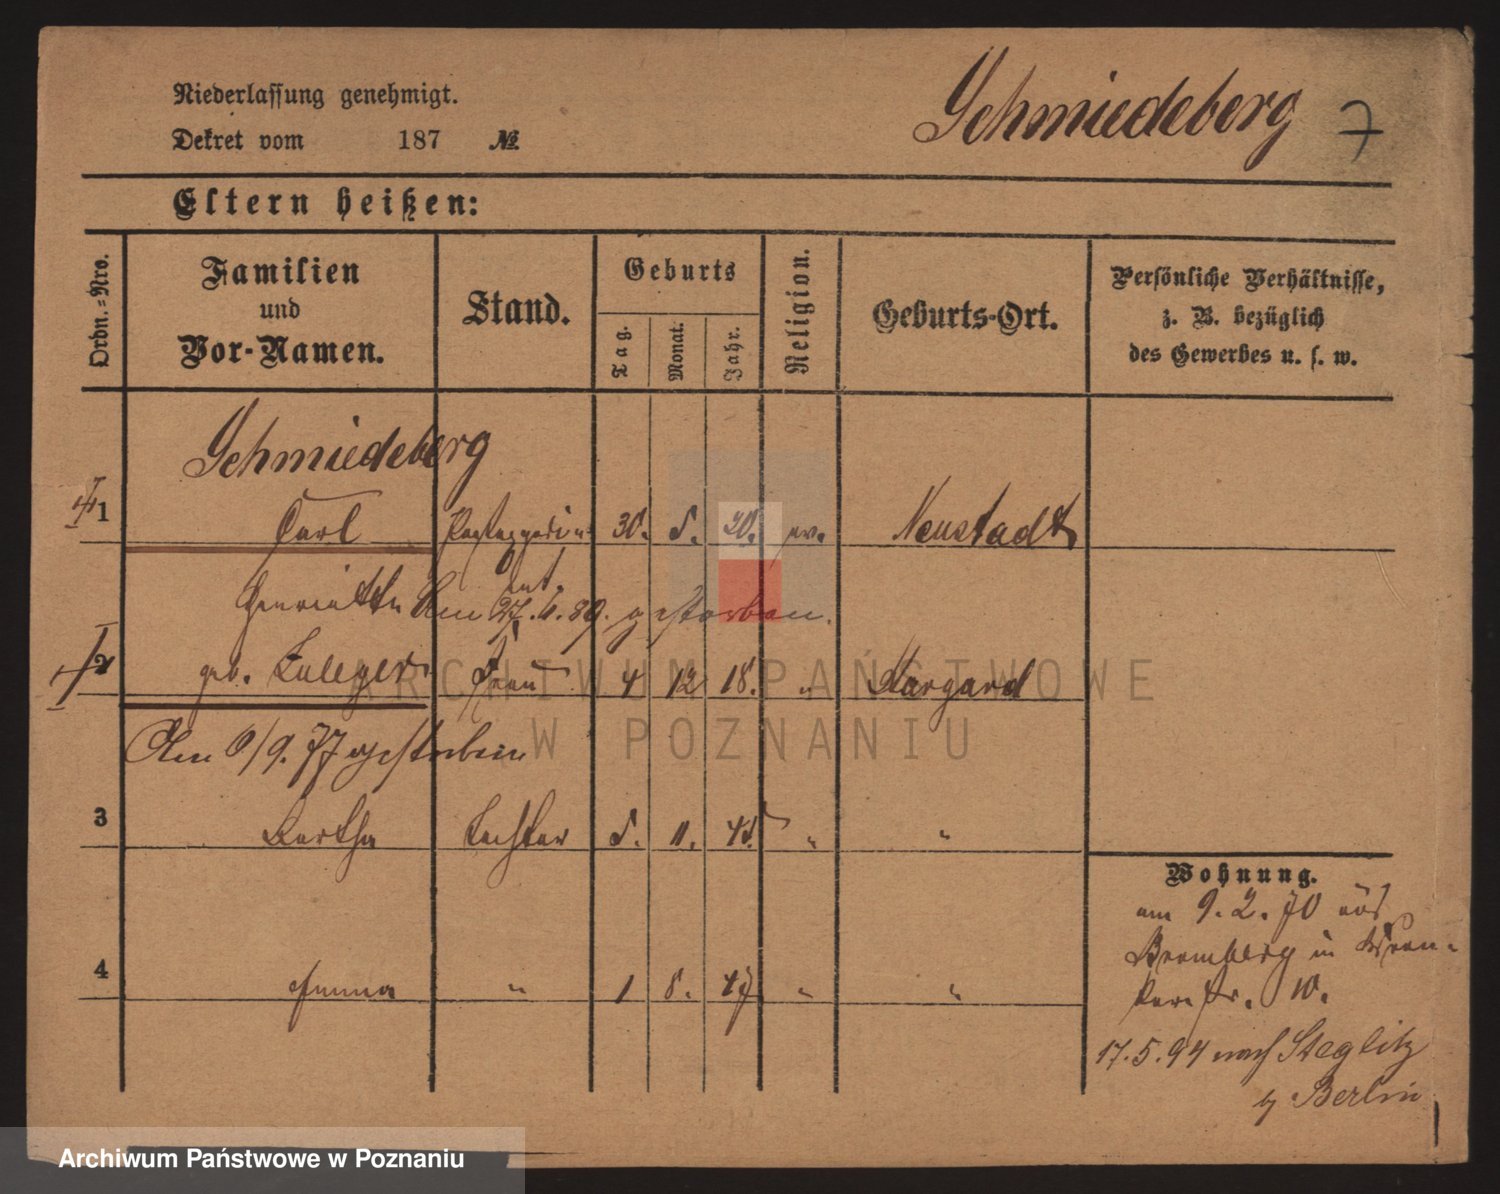 Niederlassung genehmigt.
Dekret vom 187 №
Schmiedeberg 7
Eltern heißen:
Ordn.=Nro.
Familien
und
Vor-Namen.
Stand.
Geburts
Tag.
Monat.
Jahr.
Religion.
Geburts-Ort.
Persönliche Verhältnisse,
z. B. bezüglich
des Gewerbes u. s. w.
Schmiedeberg
1 Carl 30. 20. ev. Neustadt
Henriette Am 27. 6. 89. gestorben.
2 geb. Frau 4 12 18. " Stargard
Am 6/9. 77 gestorben
3 Bertha Tochter 11. " "
4 Emma " 1 8. 47 " "
Wohnung.
am 9. 2. 70 aus
Bromberg in
10.
17. 5. 94 nach Steglitz
b/ Berlin
ARCHIWUM PAŃSTWOWE
W POZNANIU
Archiwum Państwowe w Poznaniu